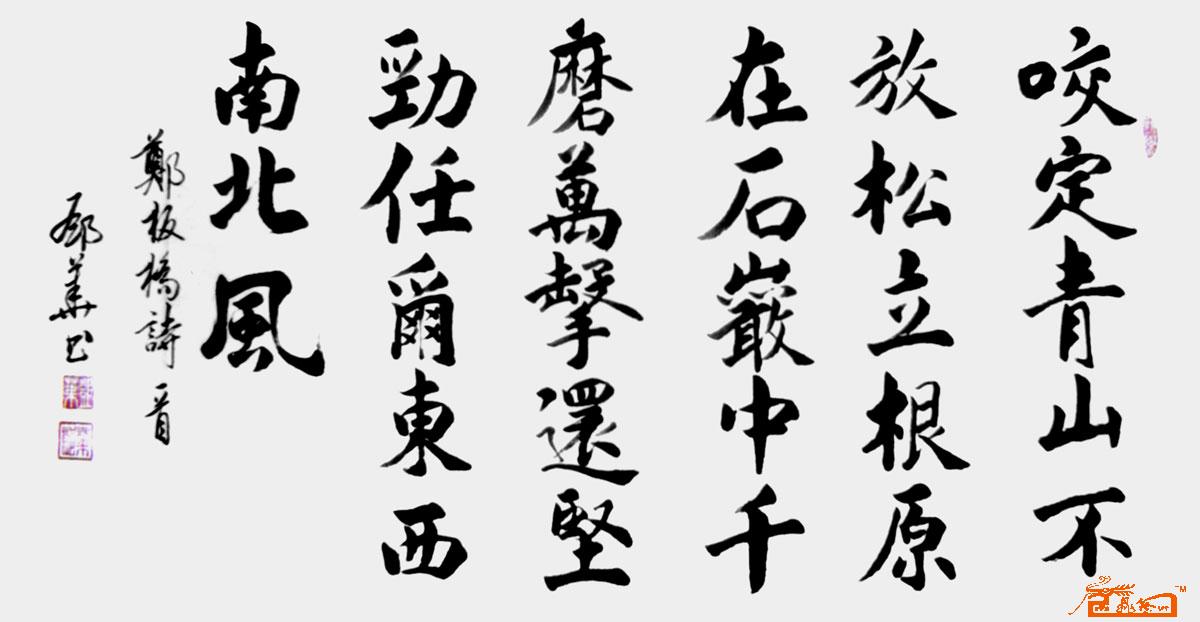 咬定青山不
放松立根原
在石巖中千
磨萬擊還堅
勁任爾東西
南北風
鄭板橋詩一首
華书